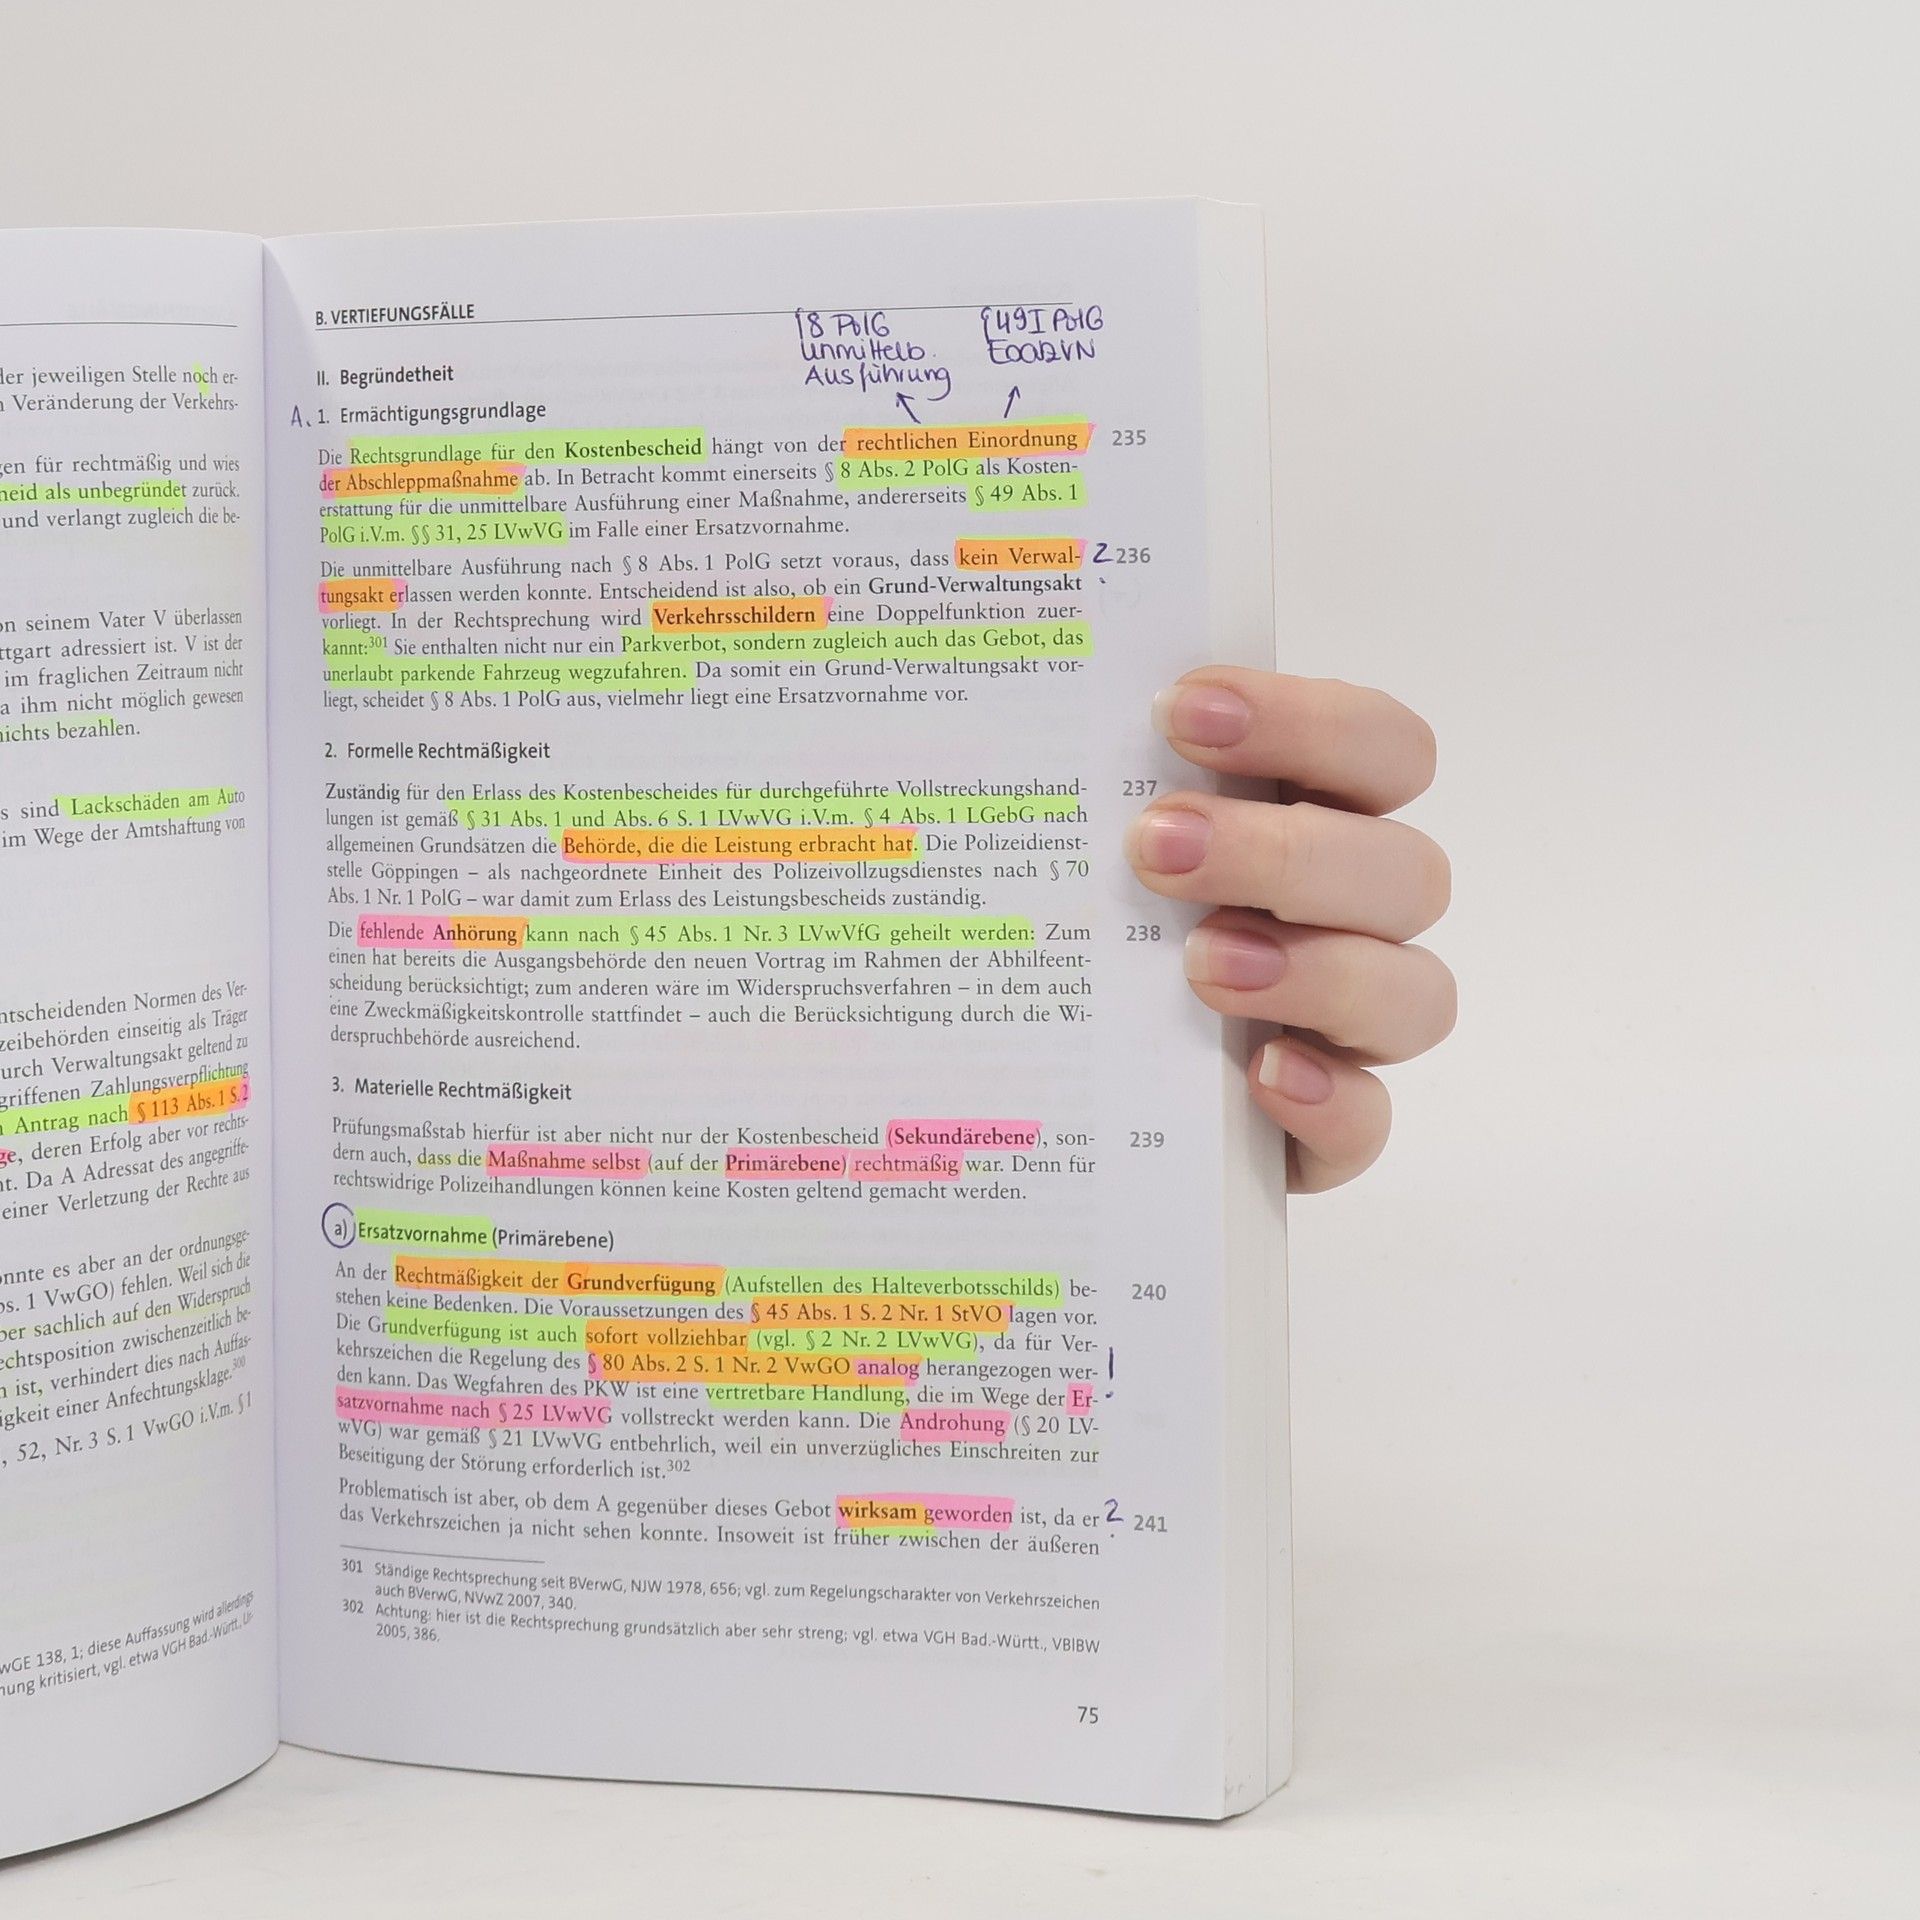 der jeweiligen Stelle noch er-
Veränderung der Verkehrs-
gen für rechtmäßig und wies
heid als unbegründet zurück.
und verlangt zugleich die be-
on seinem Vater V überlassen
ttgart adressiert ist. V ist der
im fraglichen Zeitraum nicht
a ihm nicht möglich gewesen
nichts bezahlen.
s sind Lackschäden am Auto
im Wege der Amtshaftung von
ntscheidenden Normen des Ver-
zeibehörden einseitig als Träger
urch Verwaltungsakt geltend zu
griffenen Zahlungsverpflichtung
Antrag nach § 113 Abs. 1 S. 2
ge, deren Erfolg aber vor rechts-
nt. Da A Adressat des angegriffe-
einer Verletzung der Rechte aus
onnte es aber an der ordnungsge-
bs. 1 VwGO) fehlen. Weil sich die
ber sachlich auf den Widerspruch
echtsposition zwischenzeitlich be-
n ist, verhindert dies nach Auffas-
igkeit einer Anfechtungsklage.300
, 52, Nr. 3 S. 1 VwGO i.V.m. § 1
wGE 138, 1; diese Auffassung wird allerdings
nung kritisiert, vgl. etwa VGH Bad.-Württ., Ur-
B. VERTIEFUNGSFÄLLE
§8 PolG
unmittelb.
Ausführung
§49I PolG
II. Begründetheit
A. 1. Ermächtigungsgrundlage
Die Rechtsgrundlage für den Kostenbescheid hängt von der rechtlichen Einordnung 235
der Abschleppmaßnahme ab. In Betracht kommt einerseits § 8 Abs. 2 PolG als Kosten-
erstattung für die unmittelbare Ausführung einer Maßnahme, andererseits § 49 Abs. 1
PolG i.V.m. §§ 31, 25 LVwVG im Falle einer Ersatzvornahme.
Die unmittelbare Ausführung nach § 8 Abs. 1 PolG setzt voraus, dass kein Verwal- 236
tungsakt erlassen werden konnte. Entscheidend ist also, ob ein Grund-Verwaltungsakt
vorliegt. In der Rechtsprechung wird Verkehrsschildern eine Doppelfunktion zuer-
kannt:301 Sie enthalten nicht nur ein Parkverbot, sondern zugleich auch das Gebot, das
unerlaubt parkende Fahrzeug wegzufahren. Da somit ein Grund-Verwaltungsakt vor-
liegt, scheidet § 8 Abs. 1 PolG aus, vielmehr liegt eine Ersatzvornahme vor.
2. Formelle Rechtmäßigkeit
Zuständig für den Erlass des Kostenbescheides für durchgeführte Vollstreckungshand- 237
lungen ist gemäß § 31 Abs. 1 und Abs. 6 S. 1 LVwVG i.V.m. § 4 Abs. 1 LGebG nach
allgemeinen Grundsätzen die Behörde, die die Leistung erbracht hat. Die Polizeidienst-
stelle Göppingen – als nachgeordnete Einheit des Polizeivollzugsdienstes nach § 70
Abs. 1 Nr. 1 PolG – war damit zum Erlass des Leistungsbescheids zuständig.
Die fehlende Anhörung kann nach § 45 Abs. 1 Nr. 3 LVwVfG geheilt werden: Zum 238
einen hat bereits die Ausgangsbehörde den neuen Vortrag im Rahmen der Abhilfeent-
scheidung berücksichtigt; zum anderen wäre im Widerspruchsverfahren – in dem auch
eine Zweckmäßigkeitskontrolle stattfindet – auch die Berücksichtigung durch die Wi-
derspruchbehörde ausreichend.
3. Materielle Rechtmäßigkeit
Prüfungsmaßstab hierfür ist aber nicht nur der Kostenbescheid (Sekundärebene), son- 239
dern auch, dass die Maßnahme selbst (auf der Primärebene) rechtmäßig war. Denn für
rechtswidrige Polizeihandlungen können keine Kosten geltend gemacht werden.
a) Ersatzvornahme (Primärebene)
An der Rechtmäßigkeit der Grundverfügung (Aufstellen des Halteverbotsschilds) be- 240
stehen keine Bedenken. Die Voraussetzungen des § 45 Abs. 1 S. 2 Nr. 1 StVO lagen vor.
Die Grundverfügung ist auch sofort vollziehbar (vgl. § 2 Nr. 2 LVwVG), da für Ver-
kehrszeichen die Regelung des § 80 Abs. 2 S. 1 Nr. 2 VwGO analog herangezogen wer- !
den kann. Das Wegfahren des PKW ist eine vertretbare Handlung, die im Wege der Er-
satzvornahme nach § 25 LVwVG vollstreckt werden kann. Die Androhung (§ 20 LV-
wVG) war gemäß § 21 LVwVG entbehrlich, weil ein unverzügliches Einschreiten zur
Beseitigung der Störung erforderlich ist.302
Problematisch ist aber, ob dem A gegenüber dieses Gebot wirksam geworden ist, da er 241
das Verkehrszeichen ja nicht sehen konnte. Insoweit ist früher zwischen der äußeren
301 Ständige Rechtsprechung seit BVerwG, NJW 1978, 656; vgl. zum Regelungscharakter von Verkehrszeichen
auch BVerwG, NVwZ 2007, 340.
302 Achtung: hier ist die Rechtsprechung grundsätzlich aber sehr streng; vgl. etwa VGH Bad.-Württ., VBlBW
2005, 386.
75